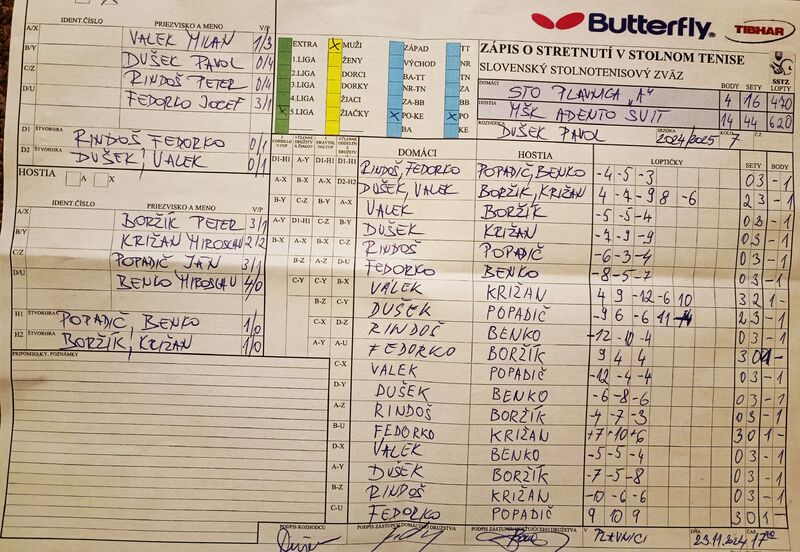 IDENT.ČÍSLO PRIEZVISKO A MENO V/P
A/X VALEK MILAN 1/3
B/Y DUŠEK PAVOL 0/4
C/Z RINDOŠ PETER 0/4
D/U FEDORKO JOCEF 3/1
D1 ŠTVORHRA RINDOŠ FEDORKO 0/1
D2 ŠTVORHRA DUŠEK, VALEK 0/1
HOSTIA A X
IDENT.ČÍSLO PRIEZVISKO A MENO V/P
A/X BORŽÍK PETER 3/1
B/Y KRIŽAN MIROSLAV 2/2
C/Z POPADIČ JAN 3/1
D/U BENKO MIROSLAV 4/0
H1 ŠTVORHRA POPADIČ, BENKO 1/0
H2 ŠTVORHRA BORŽÍK, KRIŽAN 1/0
PRIPOMIENKY, POZNÁMKY
EXTRA
1.LIGA
2.LIGA
3.LIGA
4.LIGA
5.LIGA
MUŽI
ŽENY
DORCI
DORKY
ŽIACI
ŽIAČKY
ZÁPAD
VÝCHOD
BA-TT
NR-TN
ZA-BB
PO-KE
BA
TT
NR
TN
ZA
BB
PO
KE
Butterfly
TIBHAR
ZÁPIS O STRETNUTÍ V STOLNOM TENISE
SLOVENSKÝ STOLNOTENISOVÝ ZVÄZ
SSTZ
BODY SETY LOPTY
DOMÁCI STO PLAVNICA "A" 4 16 470
HOSTIA MŠK ADENTO SVIT 14 44 620
ROZHODCA DUŠEK PAVOL SEZÓNA 2024/2025 KOLO 7 Č.
DOMÁCI HOSTIA LOPTIČKY SETY BODY
D1-H1 RINDOŠ, FEDORKO POPADIČ, BENKO -4 -5 -3 0 3 -1
D2-H2 DUŠEK, VALEK BORŽÍK, KRIŽAN -4 -7 -9 8 -6 2 3 -1
A-X VALEK BORŽÍK -5 -5 -4 0 3 -1
B-Y DUŠEK KRIŽAN -7 -9 -9 0 3 -1
C-Z RINDOŠ POPADIČ -6 -3 -4 0 3 -1
D-U FEDORKO BENKO -8 -5 -7 0 3 -1
VALEK KRIŽAN 4 9 -12 -6 10 3 2 1 -
DUŠEK POPADIČ -9 6 -6 11 2 3 -1
RINDOŠ BENKO -12 -10 -4 0 3 -1
A-U FEDORKO BORŽÍK 9 4 4 3 0 1 -
C-X VALEK POPADIČ -12 -4 -4 0 3 -1
D-Y DUŠEK BENKO -6 -8 -6 0 3 -1
A-Z RINDOŠ BORŽÍK -4 -7 -3 0 3 -1
B-U FEDORKO KRIŽAN +7 +10 +6 3 0 1 -
D-X VALEK BENKO -5 -5 -4 0 3 -1
A-Y DUŠEK BORŽÍK -7 -5 -8 0 3 -1
B-Z RINDOŠ KRIŽAN -10 -6 -6 0 3 -1
C-U FEDORKO POPADIČ 9 10 9 3 0 1 -
PODPIS ROZHODCU PODPIS ZÁSTUPCU DOMÁCEHO DRUŽSTVA PODPIS ZÁSTUPCU HOSŤUJÚCEHO DRUŽSTVA V PLAVNICI DŇA 23.11.2024 ČAS 17:00